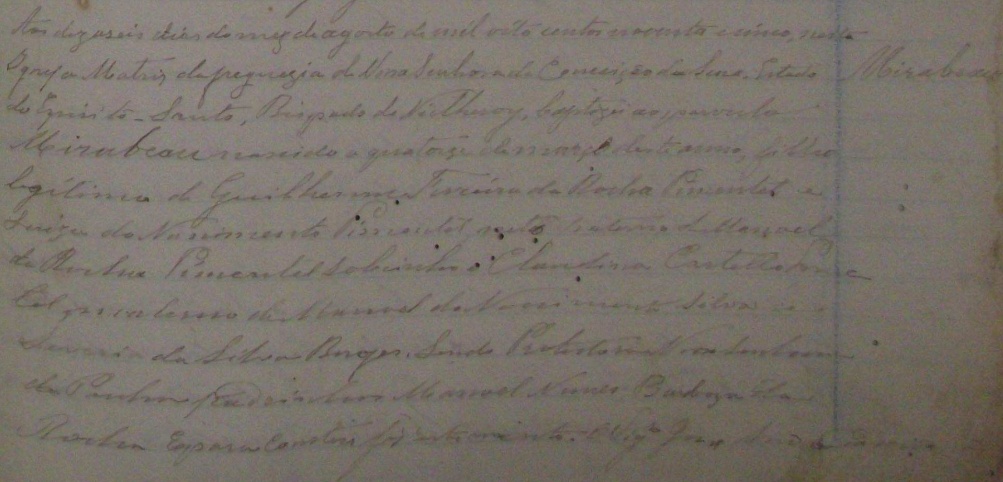 Aos dezaseis dias do mez de agosto de mil oito centos noventa e cinco, nesta
Igreja Matriz da freguezia de Nossa Senhora da Conceição da Serra, Estado
Mirabeau
do Espirito-Santo, Bispado de Nictheroy, baptizei ao parvulo
Mirabeau nascido a quatorze de março deste anno, filho
legitimo de Guilherme Pereira da Rocha Pimentel e
Luiza do Nascimento Pimentel, neto paterno de Manoel
da Rocha Pimentel Sobrinho e Claudina Castello
materno de Manoel do Nascimento Silva e
da Silva Borges. Sendo Protectora Nossa Senhora
da Penha padrinho Manoel Nunes Barboza da
Rocha E para constar fiz este assento. O Vig.º